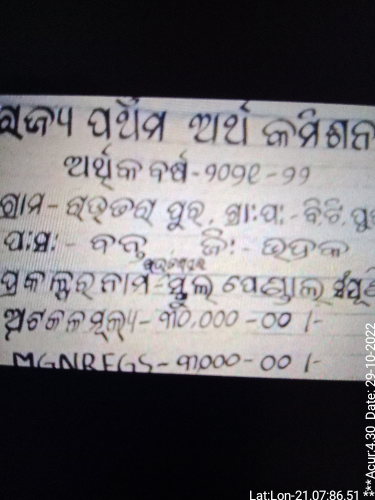 ରାଜ୍ୟ ପଥମ ଅର୍ଥ କମିଶନ
ଆର୍ଥିକ ବର୍ଷ - ୨୦୨୧ - ୨୨
ଗ୍ରାମ - ପୁର, ଗ୍ରା:ପ: - ବି.ଟି. ପୁର
ପ:ସ: - ବନ୍ତ ଜି: - ଭଦ୍ରକ
ପ୍ରକଳ୍ପର ନାମ - ସ୍କୁଲ ପେଣ୍ଡାଲ
ଅଟକଳ ମୂଲ୍ୟ - ,000 - 00 /-
MGNREGS - 000 - 00 /-
Lat:Lon-21.07:86.51
***Acur:4.30 Date: 29-10-2022